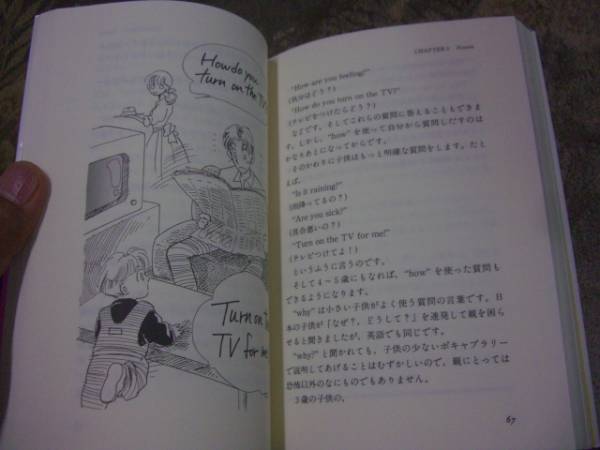 How do you
turn on the T
Turn on T
TV for me
CHAPTER 3 Home
"How are you feeling?"
(気分はどう?)
"How do you turn on the TV?"
(テレビをつけたらどう?)
などです。そしてこれらの質問に答えることもできま
す。しかし、"how" を使って自分から質問しだすのは
かなりあとになってからです。
そのかわりに子供はもっと明確な質問をします。たと
えば、
"Is it raining?"
(雨降ってるの?)
"Are you sick?"
(具合悪いの?)
"Turn on the TV for me!"
(テレビつけてよ!)
というふうに言うのです。
そして4〜5歳にもなれば、"how" を使った質問も
できるようになります。
"why" は小さい子供がよく使う質問の言葉です。日
本の子供が「なぜ?、どうして?」を連発して親を困ら
せると聞きましたが、英語でも同じです。
"why?" と聞かれても、子供の少ないボキャブラリー
で説明してあげることはむずかしいので、親にとっては
恐怖以外のなにものでもありません。
3歳の子供の、
67